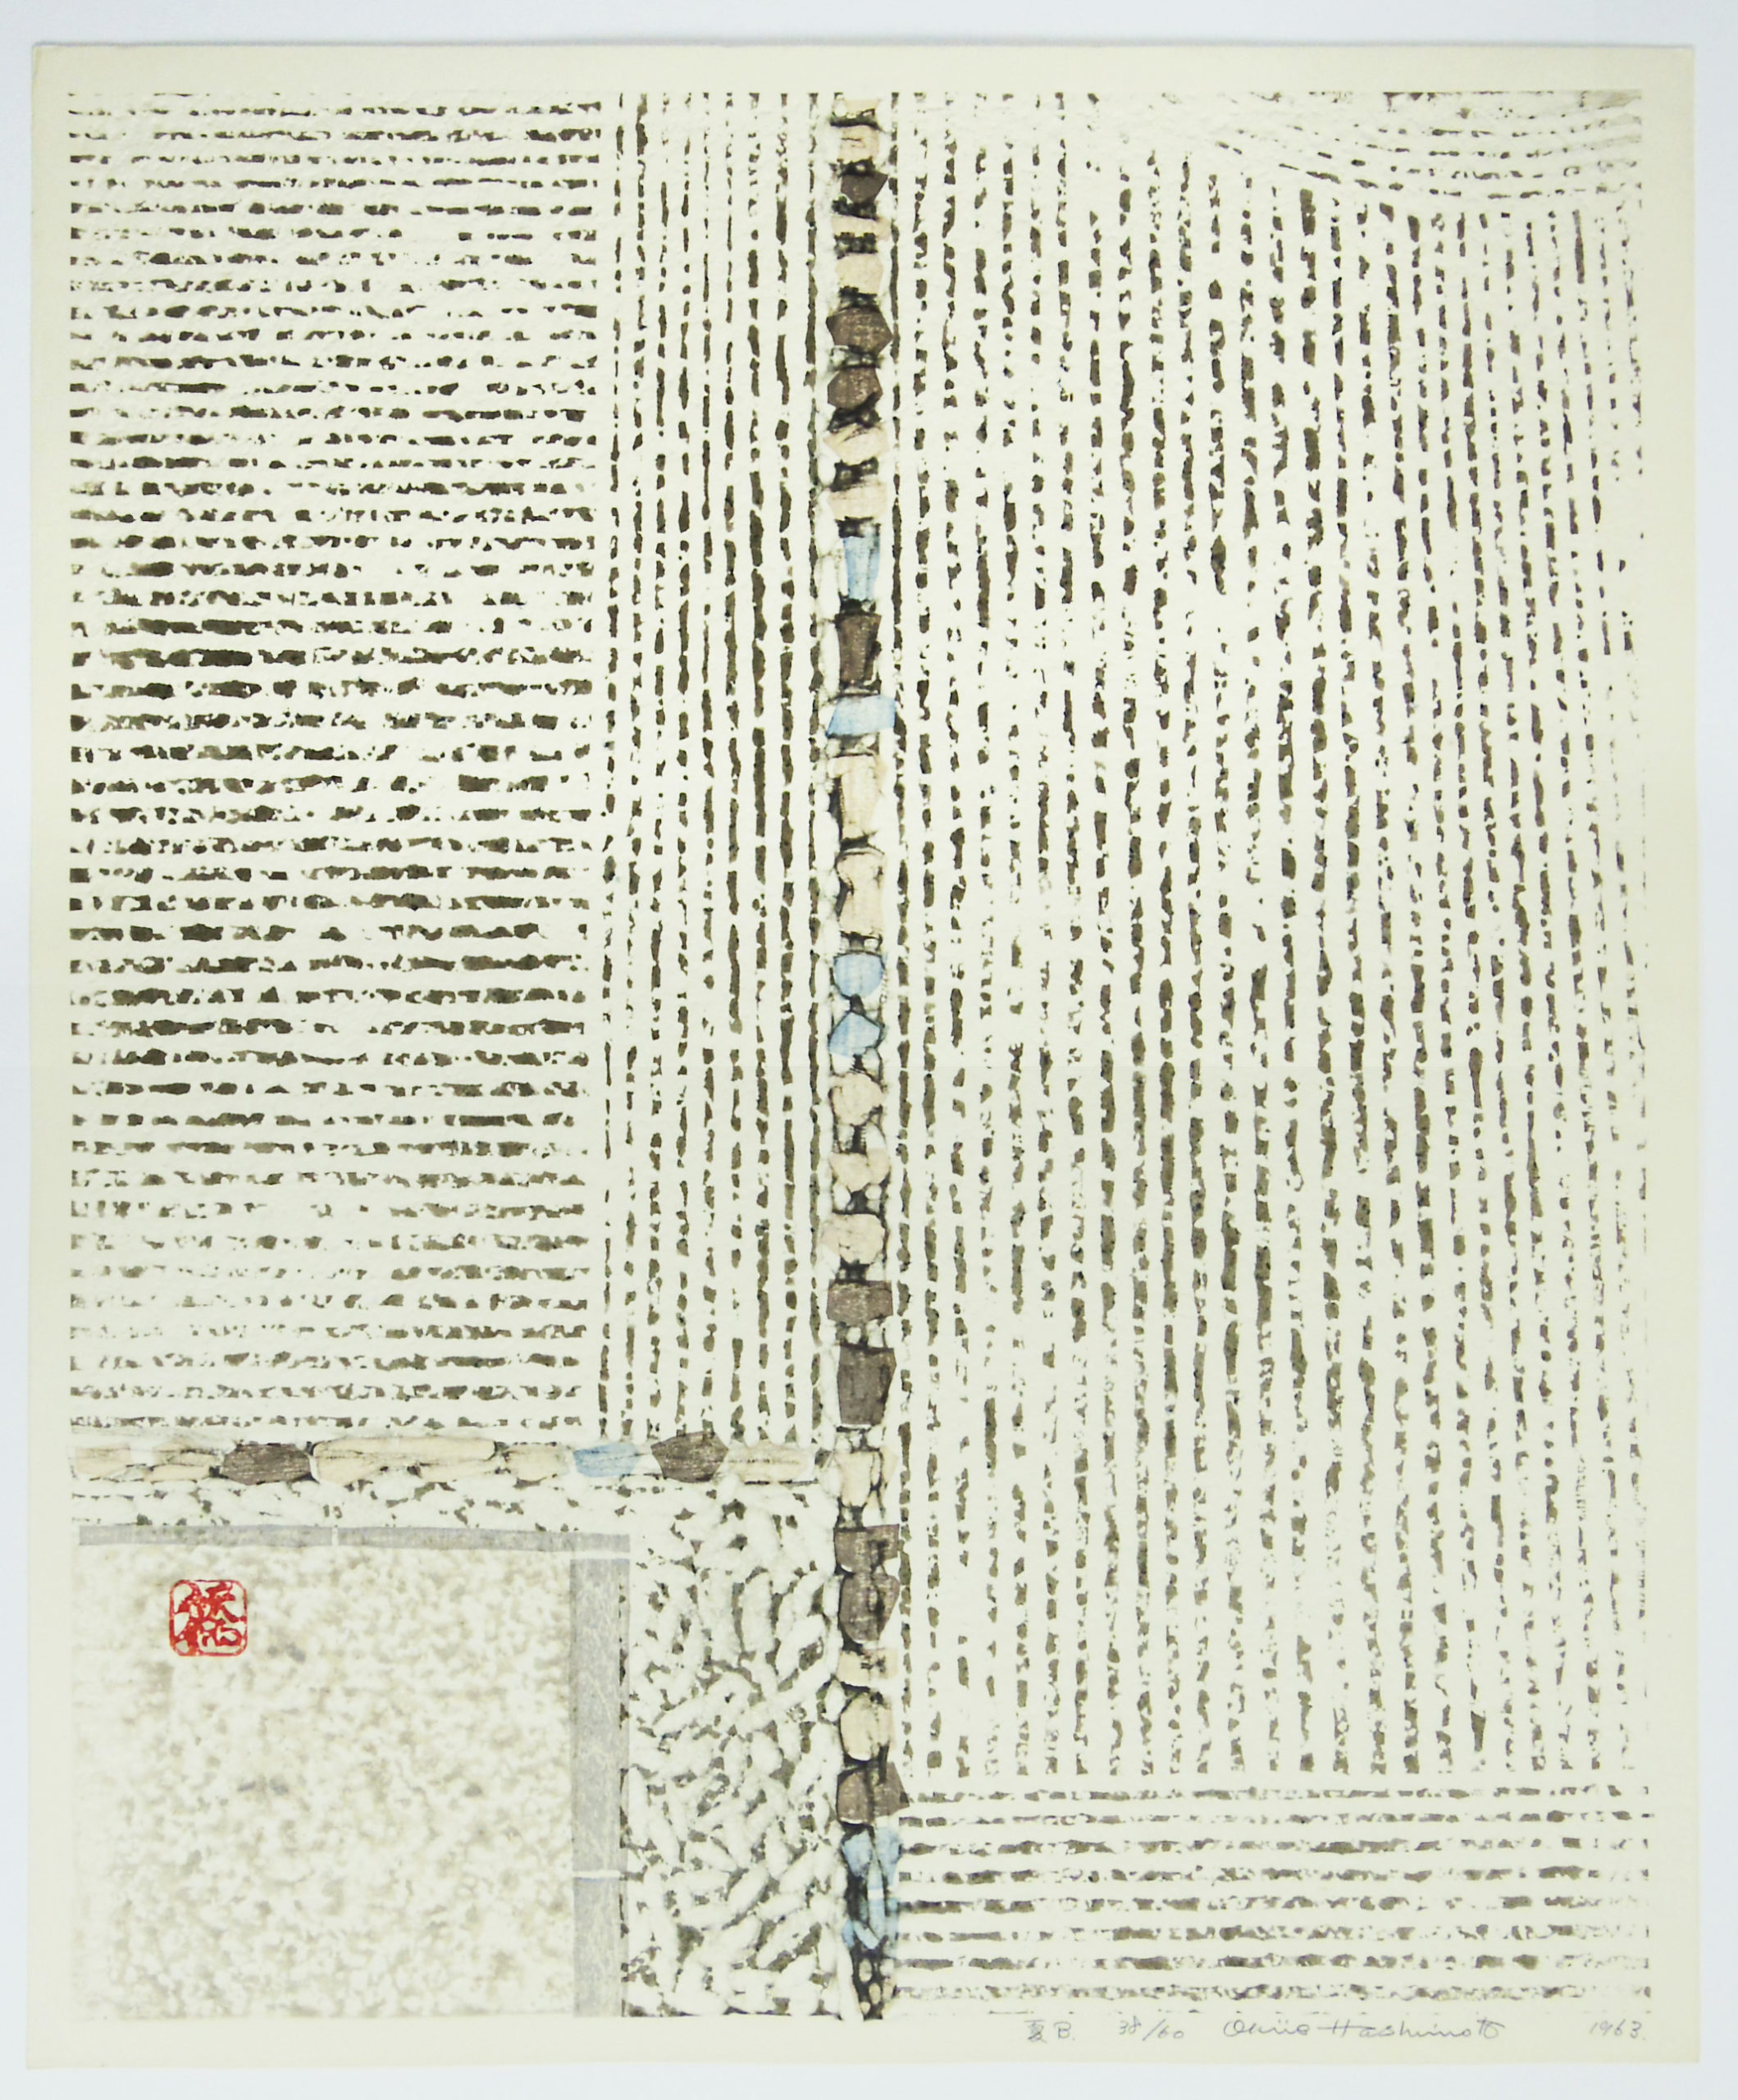 夏 B. 38/60 Okiie Hashimoto 1963.